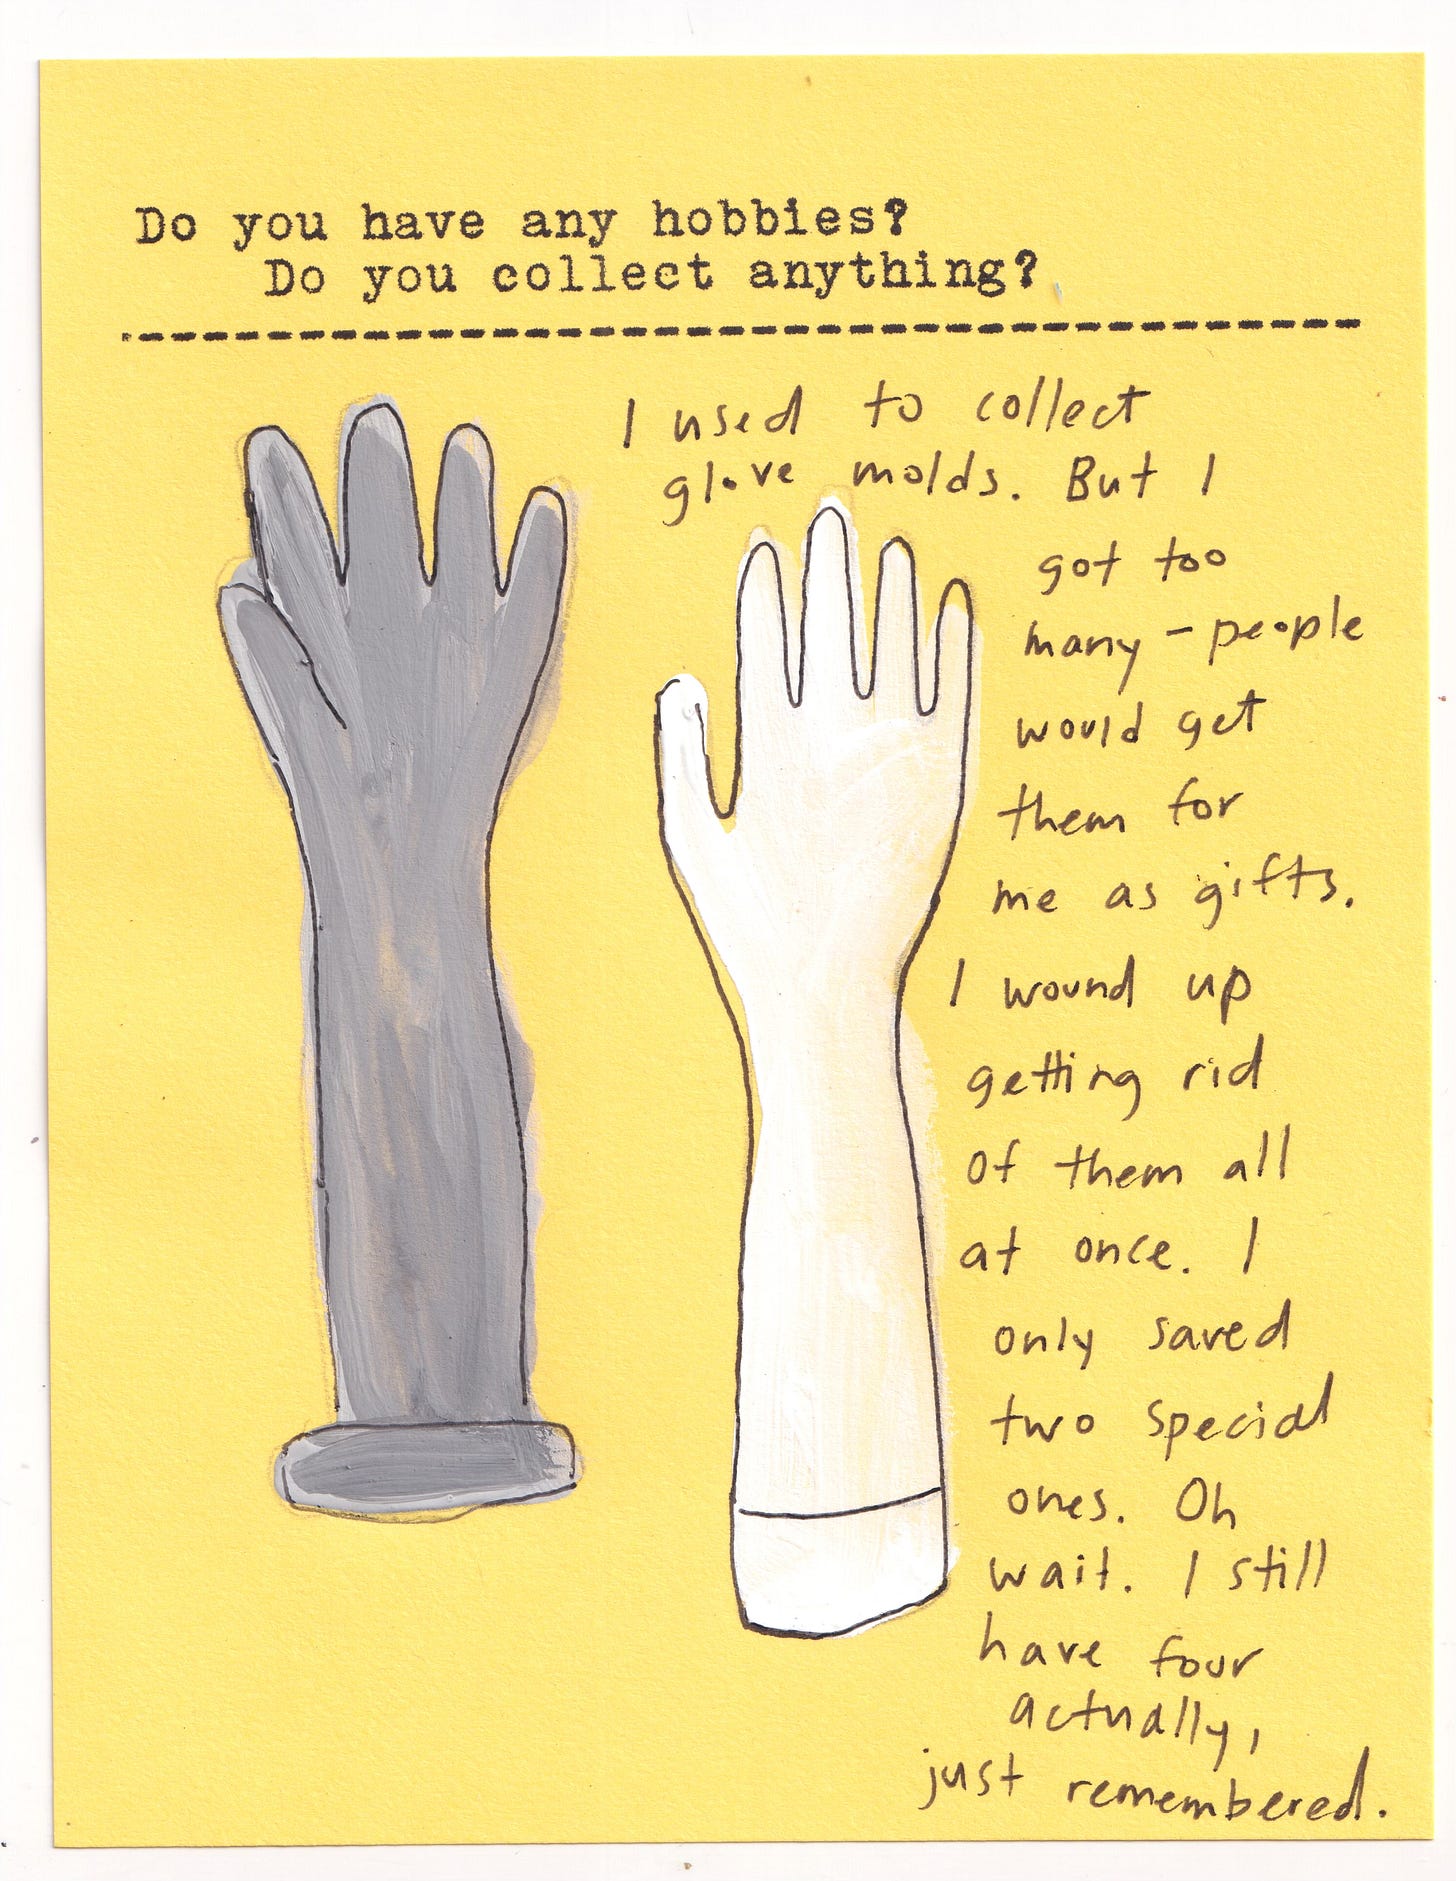 Do you have any hobbies?
Do you collect anything?
I used to collect
glove molds. But I
got too
many - people
would get
them for
me as gifts.
I wound up
getting rid
of them all
at once. I
only saved
two special
ones. Oh
wait. I still
have four
actually,
just remembered.